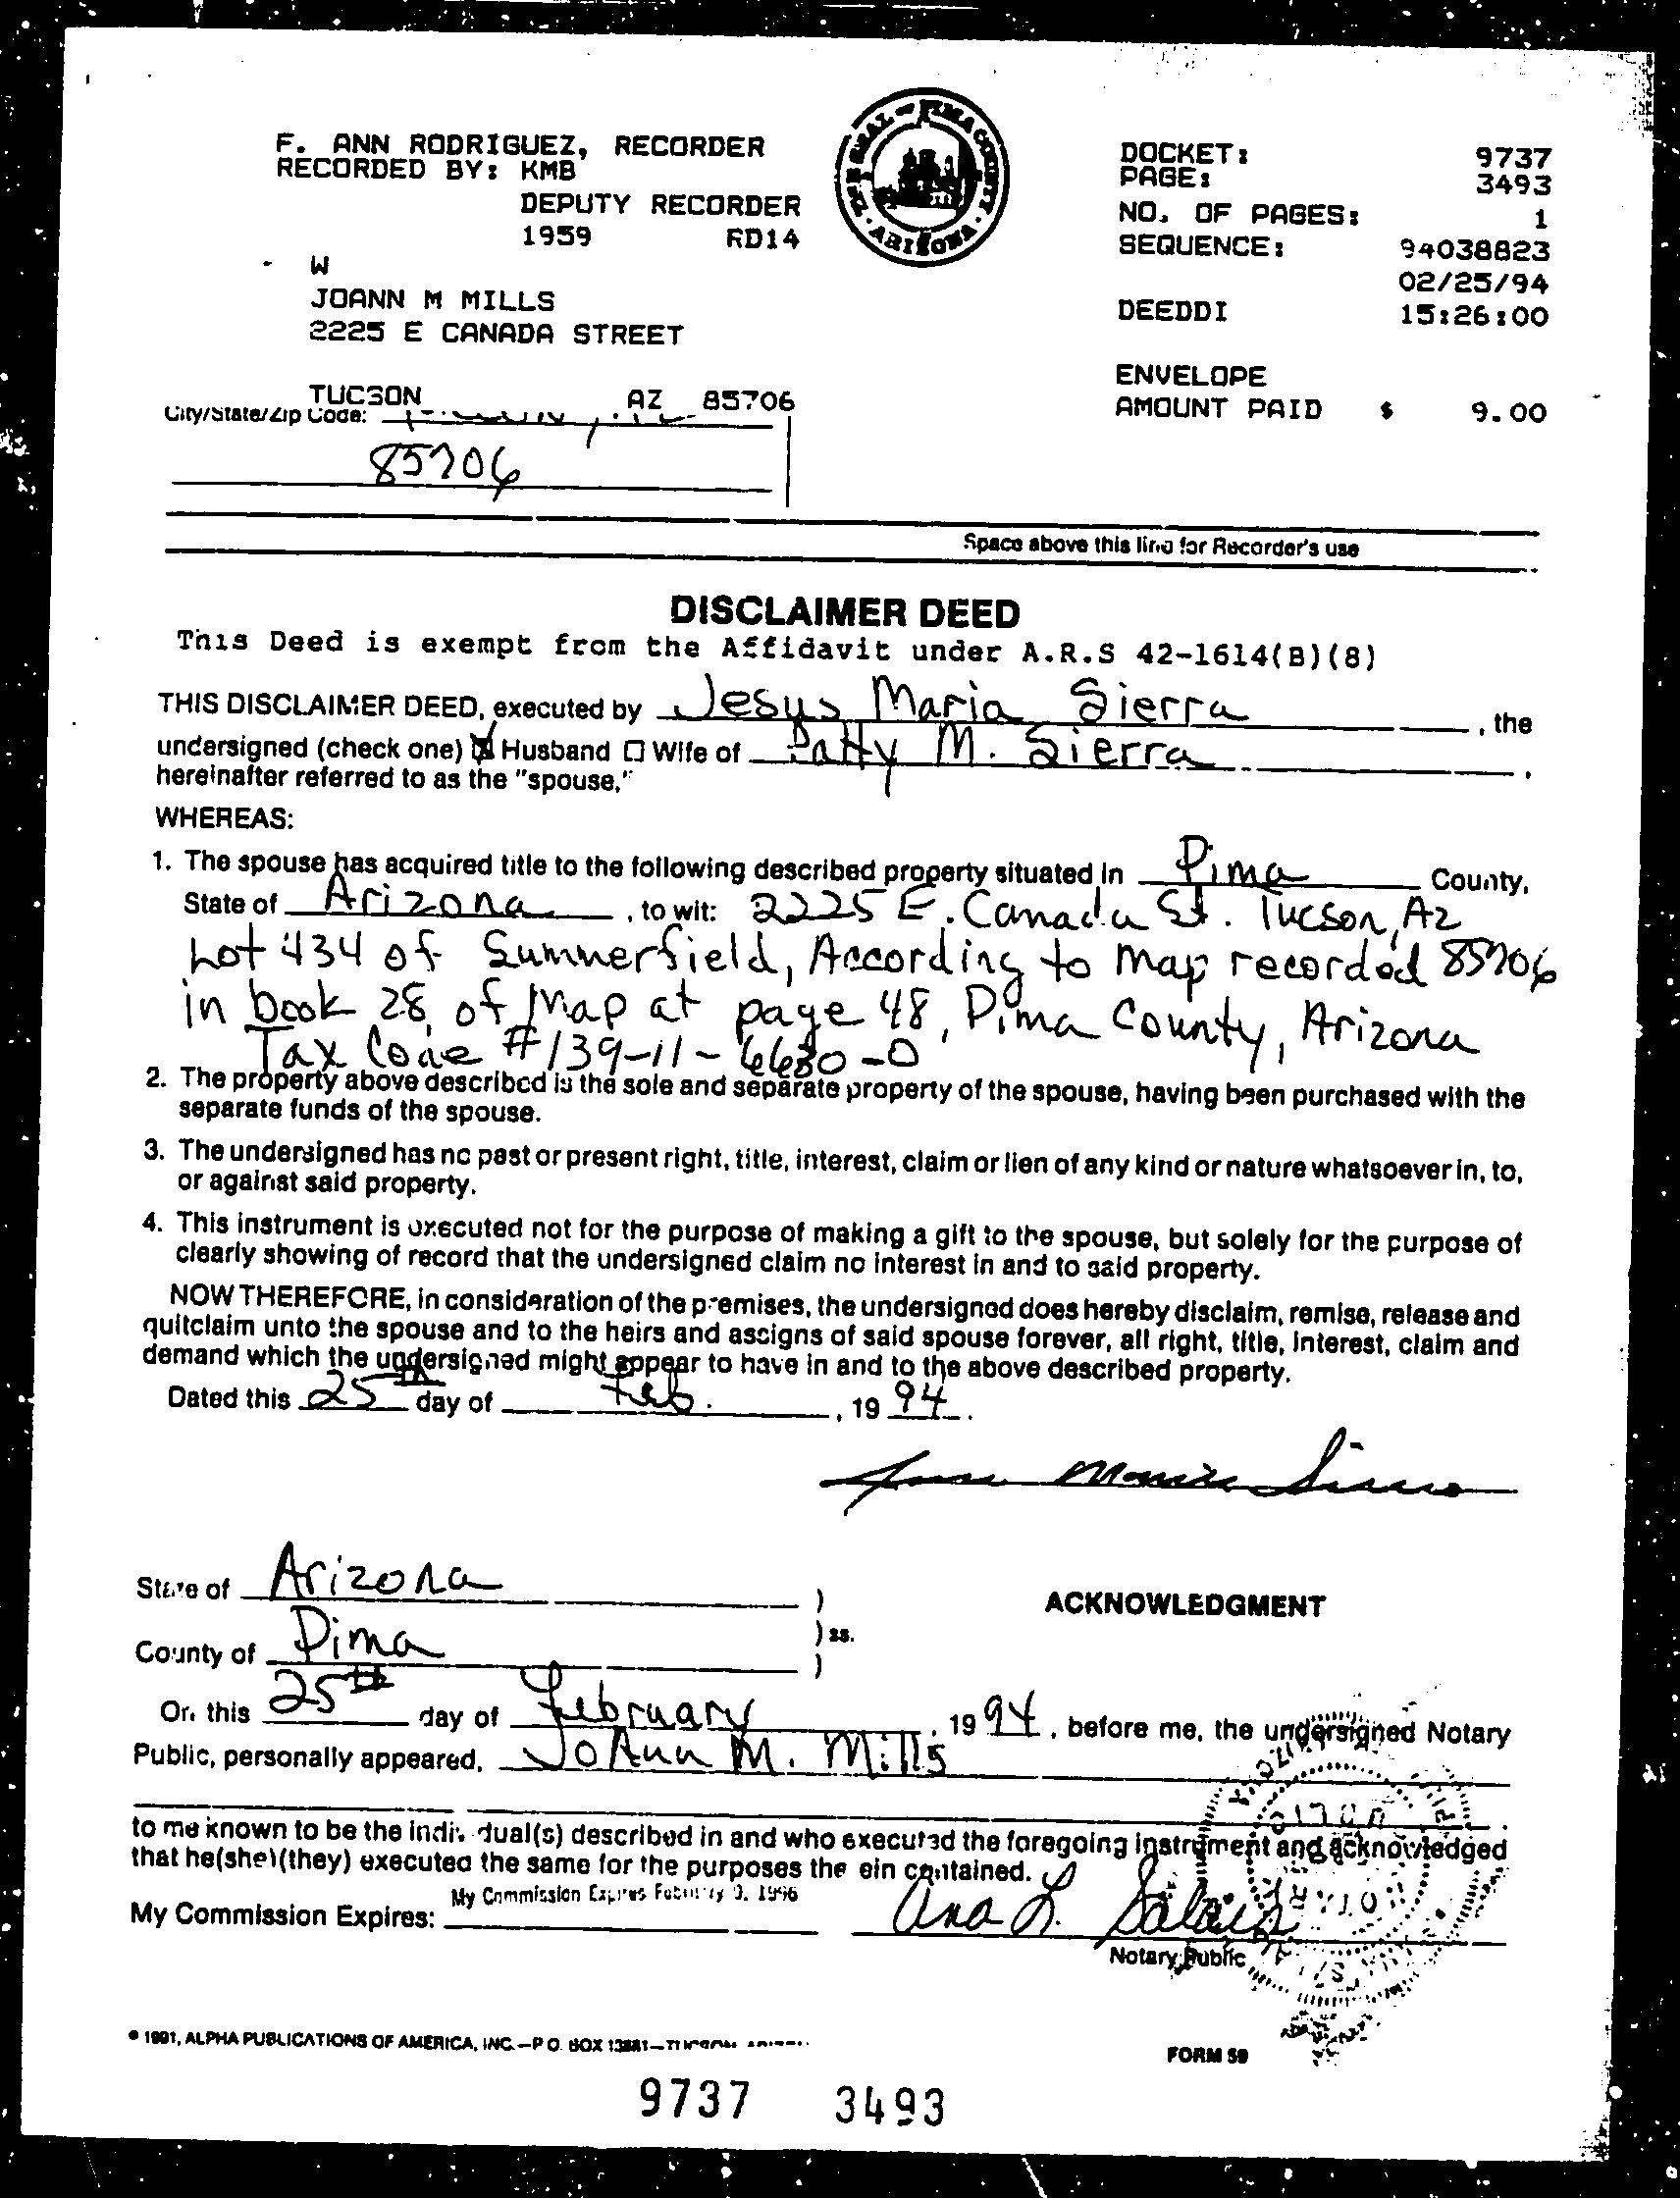 F. ANN RODRIGUEZ, RECORDER
RECORDED BY: KMB
DEPUTY RECORDER
1959 RD14
W
JOANN M MILLS
2225 E CANADA STREET
TUCSON AZ 85706
City/State/Zip Code:
85706
SEAL OF PIMA COUNTY
ARIZONA
DOCKET: 9737
PAGE: 3493
NO. OF PAGES: 1
SEQUENCE: 94038823
02/25/94
DEEDDI 15:26:00
ENVELOPE
AMOUNT PAID $ 9.00
Space above this line for Recorder's use
DISCLAIMER DEED
This Deed is exempt from the Affidavit under A.R.S 42-1614(B)(8)
THIS DISCLAIMER DEED, executed by Jesus Maria Sierra, the
undersigned (check one) ☒ Husband ☐ Wife of Patty M. Sierra,
hereinafter referred to as the "spouse,"
WHEREAS:
1. The spouse has acquired title to the following described property situated in Pima County,
State of Arizona, to wit: 2225 E. Canada St. Tucson, Az
Lot 434 of Summerfield, According to map recorded 85706
in book 28, of Map at page 48, Pima County, Arizona
Tax Code #139-11-
2. The property above described is the sole and separate property of the spouse, having been purchased with the
separate funds of the spouse.
3. The undersigned has no past or present right, title, interest, claim or lien of any kind or nature whatsoever in, to,
or against said property.
4. This instrument is executed not for the purpose of making a gift to the spouse, but solely for the purpose of
clearly showing of record that the undersigned claim no interest in and to said property.
NOW THEREFORE, in consideration of the premises, the undersigned does hereby disclaim, remise, release and
quitclaim unto the spouse and to the heirs and assigns of said spouse forever, all right, title, interest, claim and
demand which the undersigned might appear to have in and to the above described property.
Dated this 25th day of Feb., 1994.
Maria Sierra
State of Arizona )
ACKNOWLEDGMENT
) ss.
County of Pima )
On this 25th day of February, 1994, before me, the undersigned Notary
Public, personally appeared, JoAnn M. Mills
to me known to be the individual(s) described in and who executed the foregoing instrument and acknowledged
that he(she)(they) executed the same for the purposes therein contained.
My Commission Expires February 1996
My Commission Expires:
Ana L.
Notary Public
© 1991, ALPHA PUBLICATIONS OF AMERICA, INC.—P.O. BOX
FORM 59
9737 3493